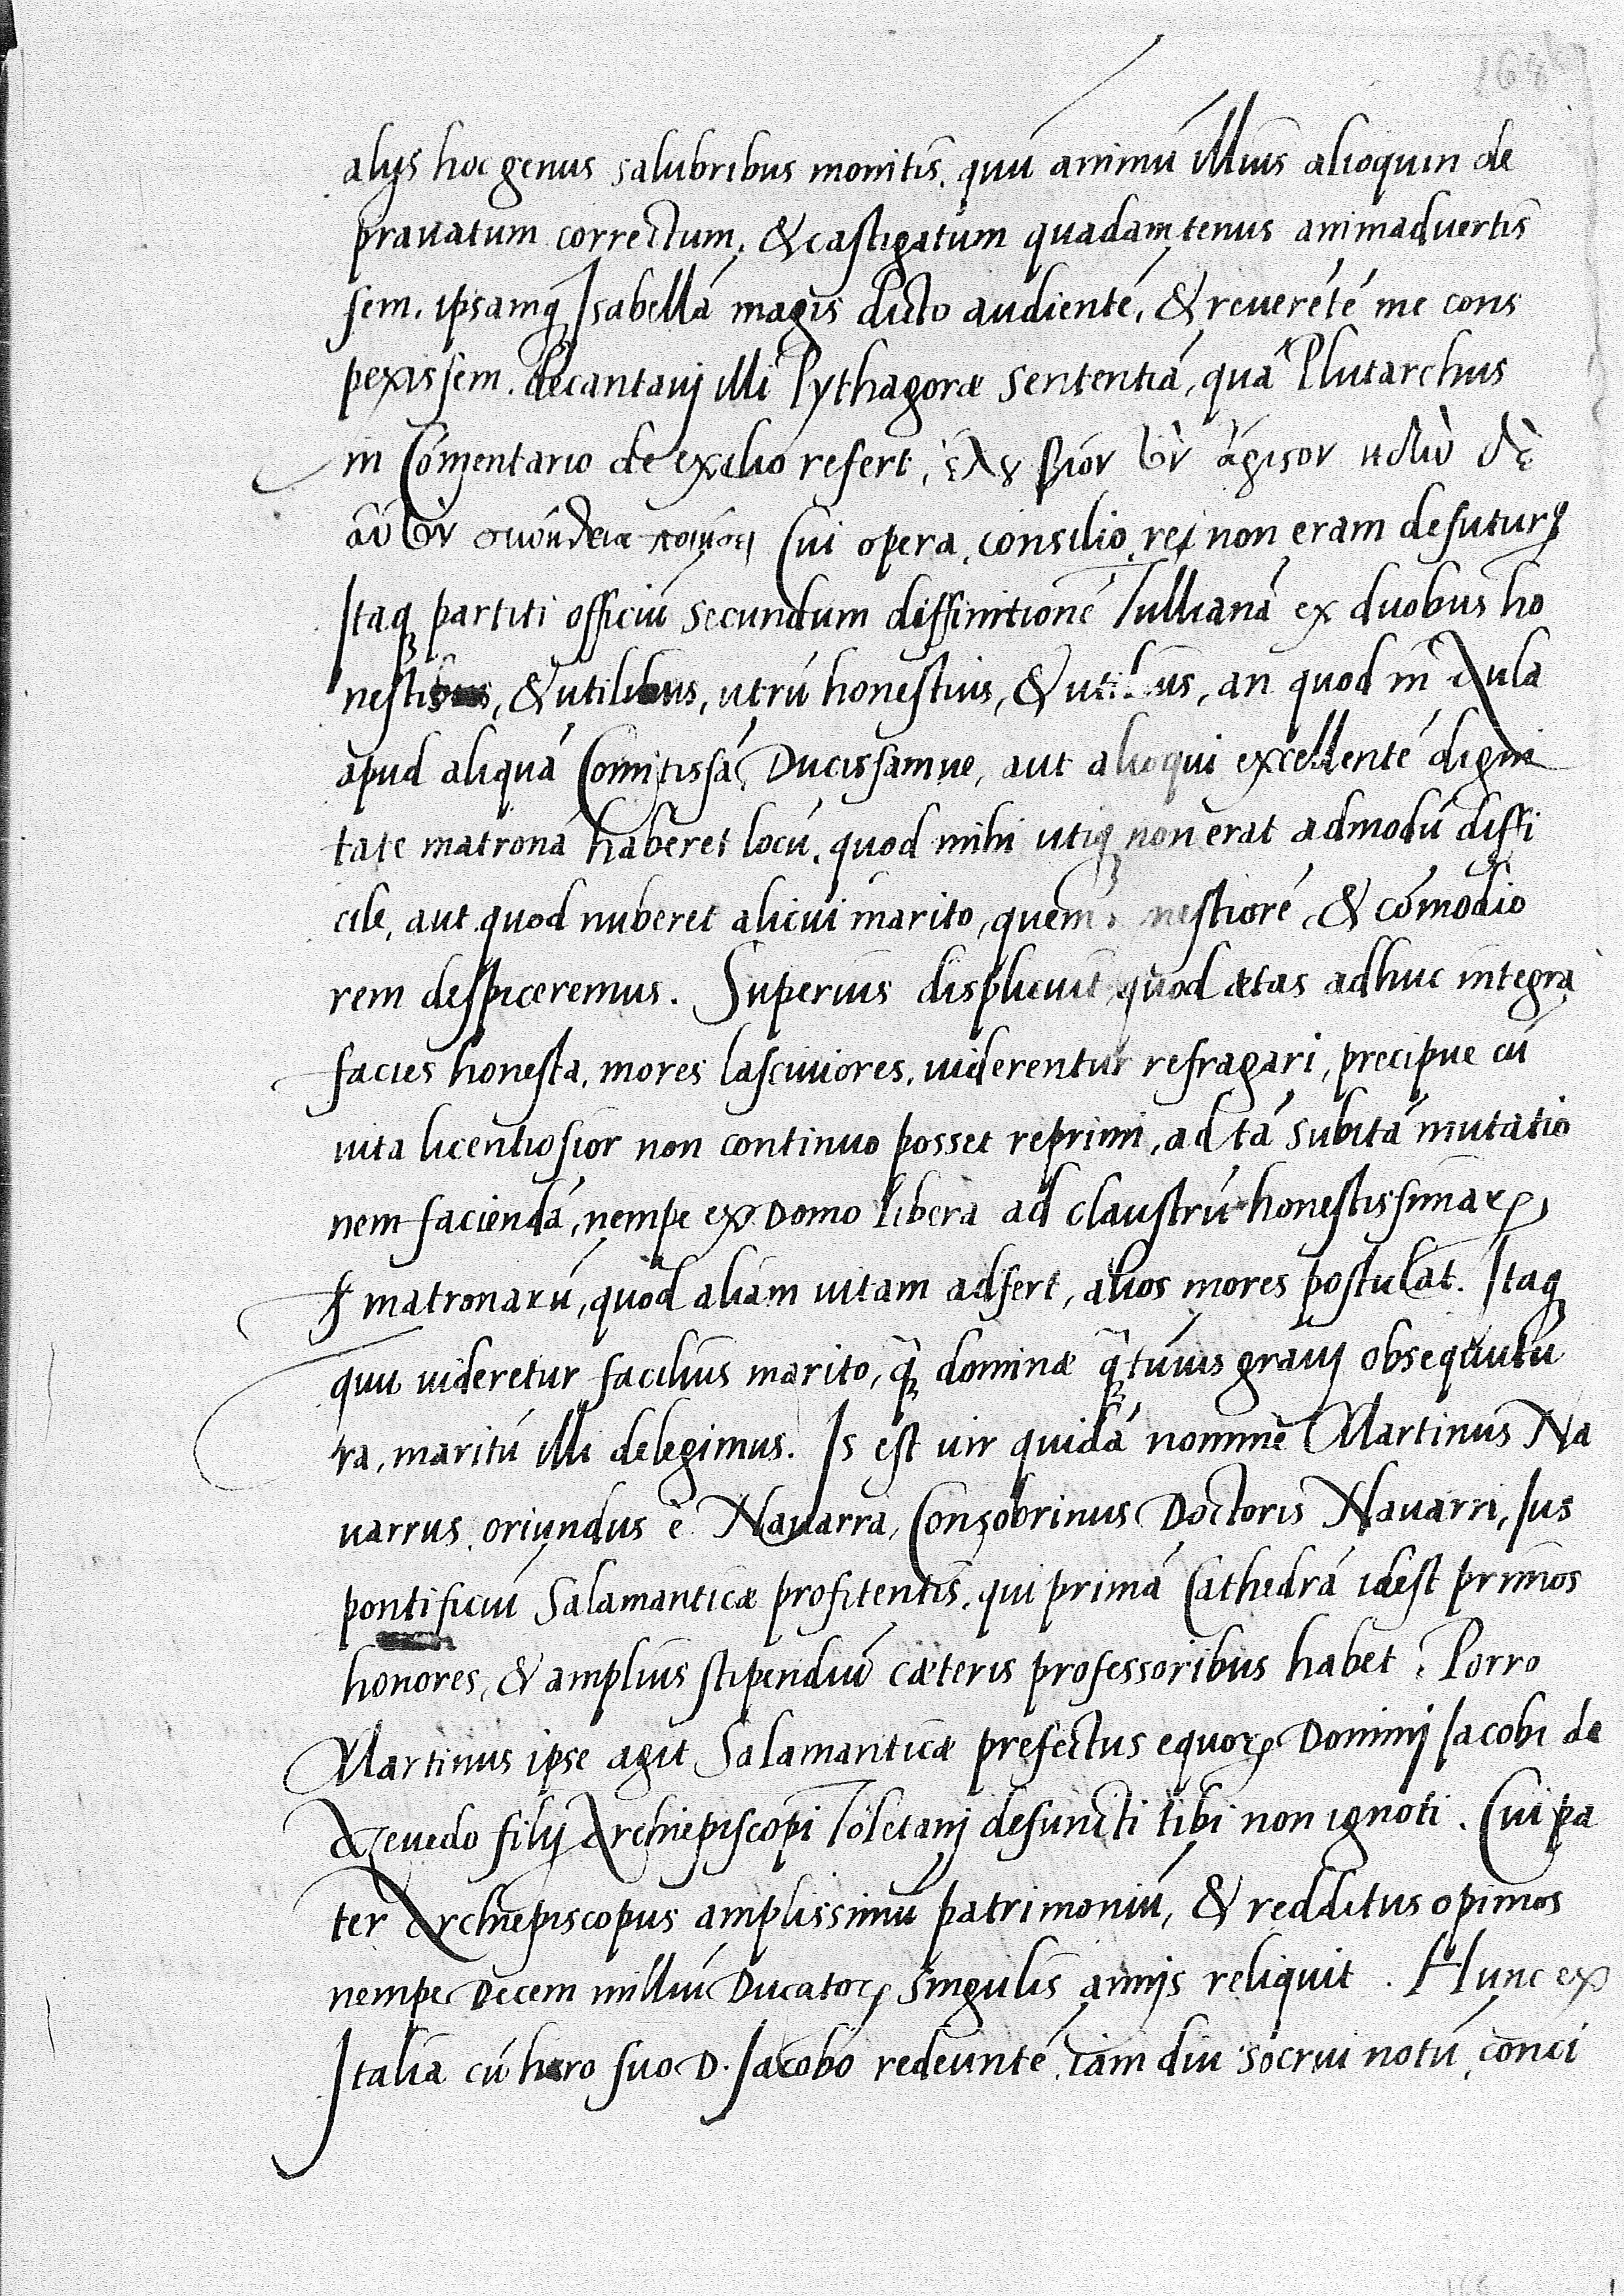 alijs hoc genus salubribus monitis. quú animú illius alioquin de
pravatum correctum, & castigatum quadamtenus animadvertis
sem. ipsamq Isabellá magis dicto audienté, & reverété me cons
pexissem. decantavj illi Pythagoræ sententiá, quá Plutarchus
in Cómentario de exilio refert, ἑλȣ βίον τὸν ἄριστον ἡδὺν δὲ
αὐτὸν συνήθεια ποιήσει Cui opera, consilio, rej non eram defuturꝰ
Itaq partiti officiú secundum diffinitioné Tullianá ex duobus ho
nestibus, & utilibus, utrú honestius, & utilius, an quod in Aula
apud aliquá Comitissá, Ducissamve, aut alioqui excellenté digni
tate matroná haberet locú. quod mihi utiq non erat admodú diffi
cile, aut quod nuberet alicui marito, quem nestioré, & cómodio
rem despiceremus. Superius displicuit, quod ætas adhuc integra
facies honesta, mores lasciviores, viderentur refragari, precipue cú
vita licentiosior non continuo posset reprimi, ad tá subitá mutatio
nem faciendá, nempe ex Domo libera ad claustrú honestissimaꝝ
matronarú, quod aliam vitam adfert, alios mores postulat. Itaq
quu videretur facilius marito, q̃ dominæ q̃túvis gravj obsequutu
ra, maritú illi delegimus. Is est vir quidá nomine Martinus Na
varrus, oriundus è Navarra, Consobrinus Doctoris Navarri, Ius
pontificiú Salamanticæ profitentis, qui primá Cathedrá idest primos
honores, & amplius stipendiú cæteris professoribus habet. Porro
Martinus ipse agit Salamanticæ prefectus equoꝝ Dominj Iacobi de
Azevedo filij Archiepiscopi Toletanj defuncti tibi non ignoti. Cui pa
ter Archiepiscopus amplissimú patrimoniú, & redditus opimos
nempe Decem milliú Ducatoꝝ singulis annis reliquit. Hunc ex
Italia cú hero suo D. Iacobo redeunté, iam diu socrui notú, conci